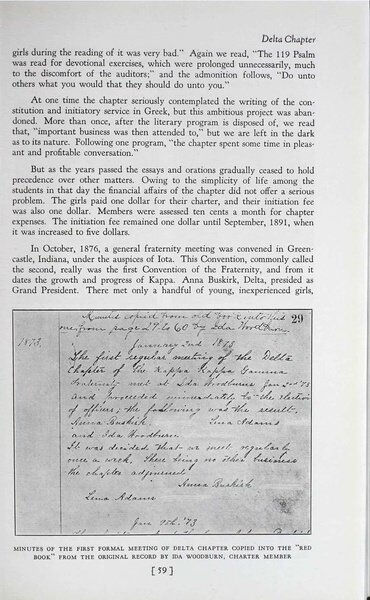 Delta Chapter
girls during the reading of it was very bad." Again we read, "The 119 Psalm
was read for devotional exercises, which were prolonged unnecessarily, much
to the discomfort of the auditors;" and the admonition follows, "Do unto
others what you would that they should do unto you."
At one time the chapter seriously contemplated the writing of the con-
stitution and initiatory service in Greek, but this ambitious project was aban-
doned. More than once, after the literary program is disposed of, we read
that, "important business was then attended to," but we are left in the dark
as to its nature. Following one program, "the chapter spent some time in pleas-
ant and profitable conversation."
But as the years passed the essays and orations gradually ceased to hold
precedence over other matters. Owing to the simplicity of life among the
students in that day the financial affairs of the chapter did not offer a serious
problem. The girls paid one dollar for their charter, and their initiation fee
was also one dollar. Members were assessed ten cents a month for chapter
expenses. The initiation fee remained one dollar until September, 1891, when
it was increased to five dollars.
In October, 1876, a general fraternity meeting was convened in Green-
castle, Indiana, under the auspices of Iota. This Convention, commonly called
the second, really was the first Convention of the Fraternity, and from it
dates the growth and progress of Kappa. Anna Buskirk, Delta, presided as
Grand President. There met only a handful of young, inexperienced girls,
Minutes copied from old book into this 29
one, from page 29 to 60 by Ida Woodburn.
1873. January 2nd 1873
The first regular meeting of the Delta
Chapter of the Kappa Kappa Gamma
Fraternity met at Ida Woodburns Jan 2nd '73
and proceeded immediately to the election
of officers; the following was the result.
Anna Buskirk, Lena Adams
and Ida Woodburn.
It was decided that we meet regularly
once a week. There being no other business
the chapter adjourned.
Anna Buskirk
Lena Adams
Jan 9th. '73
MINUTES OF THE FIRST FORMAL MEETING OF DELTA CHAPTER COPIED INTO THE "RED
BOOK" FROM THE ORIGINAL RECORD BY IDA WOODBURN, CHARTER MEMBER
[ 59 ]